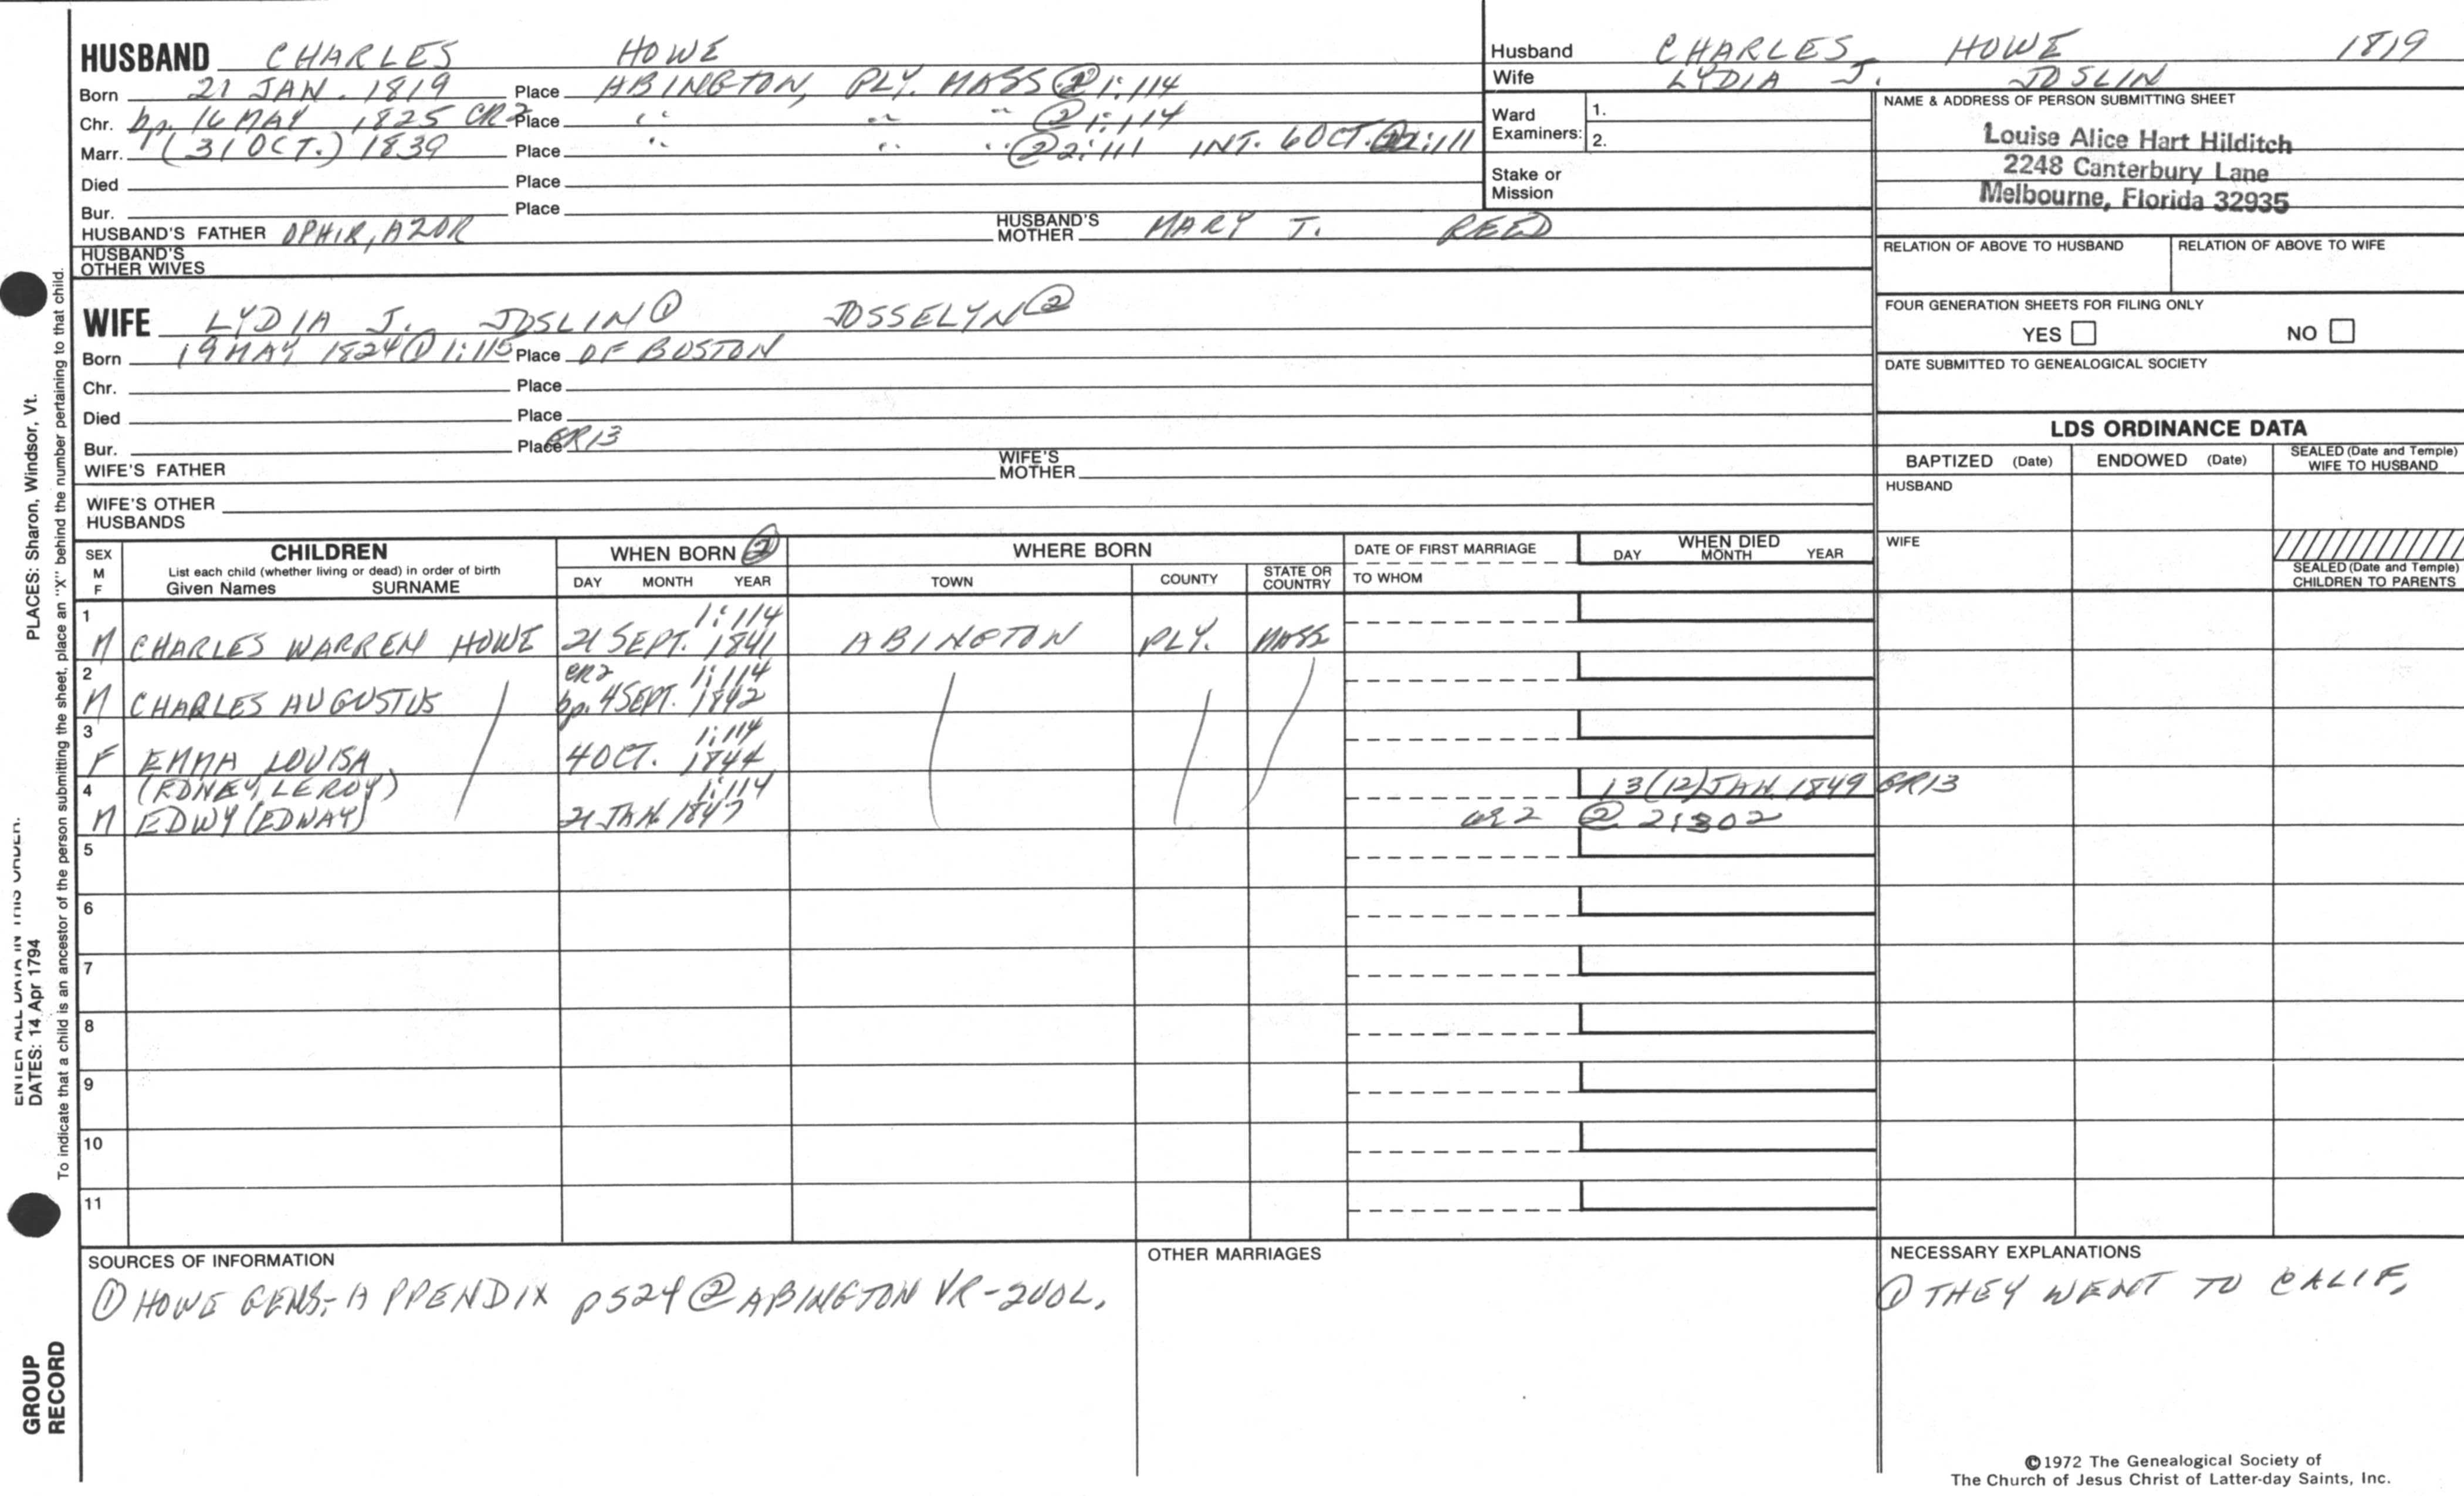 HUSBAND CHARLES HOWE
Born 21 JAN. 1819 Place ABINGTON, PLY. MASS ② 1:114
Chr. bp. 16 MAY 1825 CR2 Place " " " ② 1:114
Marr. (31 OCT.) 1839 Place " " " ② 2:111 INT. 6 OCT. ② 2:111
Died Place
Bur. Place
HUSBAND'S FATHER OPHIR, AZOR HUSBAND'S MOTHER MARY T. REED
HUSBAND'S OTHER WIVES
Husband CHARLES HOWE 1819
Wife LYDIA J. JOSLIN
Ward Examiners: 1.
2.
Stake or Mission
NAME & ADDRESS OF PERSON SUBMITTING SHEET
Louise Alice Hart Hilditch
2248 Canterbury Lane
Melbourne, Florida 32935
RELATION OF ABOVE TO HUSBAND RELATION OF ABOVE TO WIFE
FOUR GENERATION SHEETS FOR FILING ONLY
YES NO
DATE SUBMITTED TO GENEALOGICAL SOCIETY
WIFE LYDIA J. JOSLIN ① JOSSELYN ②
Born 19 MAY 1824 ① 1:115 Place OF BOSTON
Chr. Place
Died Place
Bur. Place GR13
WIFE'S FATHER WIFE'S MOTHER
WIFE'S OTHER HUSBANDS
LDS ORDINANCE DATA
BAPTIZED (Date) ENDOWED (Date) SEALED (Date and Temple) WIFE TO HUSBAND
HUSBAND
WIFE
SEALED (Date and Temple) CHILDREN TO PARENTS
SEX M F CHILDREN WHEN BORN ② WHERE BORN DATE OF FIRST MARRIAGE WHEN DIED
List each child (whether living or dead) in order of birth
Given Names SURNAME DAY MONTH YEAR TOWN COUNTY STATE OR COUNTRY TO WHOM DAY MONTH YEAR
1 1:114
M CHARLES WARREN HOWE 21 SEPT. 1841 ABINGTON PLY. MASS
2 CR2 1:114
M CHARLES AUGUSTUS bp. 4 SEPT. 1842
3 1:114
F EMMA LOUISA 4 OCT. 1844
4 (EDNEY, LEROY) 1:114 13(12) JAN. 1849 GR13
M EDWY (EDWAY) 21 JAN. 1847 CR2 ② 2:302
5
6
7
8
9
10
11
SOURCES OF INFORMATION
① HOWE GENS.- APPENDIX p524 ② ABINGTON VR - 2VOL.
OTHER MARRIAGES
NECESSARY EXPLANATIONS
① THEY WENT TO CALIF.
©1972 The Genealogical Society of
The Church of Jesus Christ of Latter-day Saints, Inc.
PLACES: Sharon, Windsor, Vt.
ENTER ALL DATA IN THIS ORDER:
DATES: 14 Apr 1794
To indicate that a child is an ancestor of the person submitting the sheet, place an "X" behind the number pertaining to that child.
GROUP
RECORD